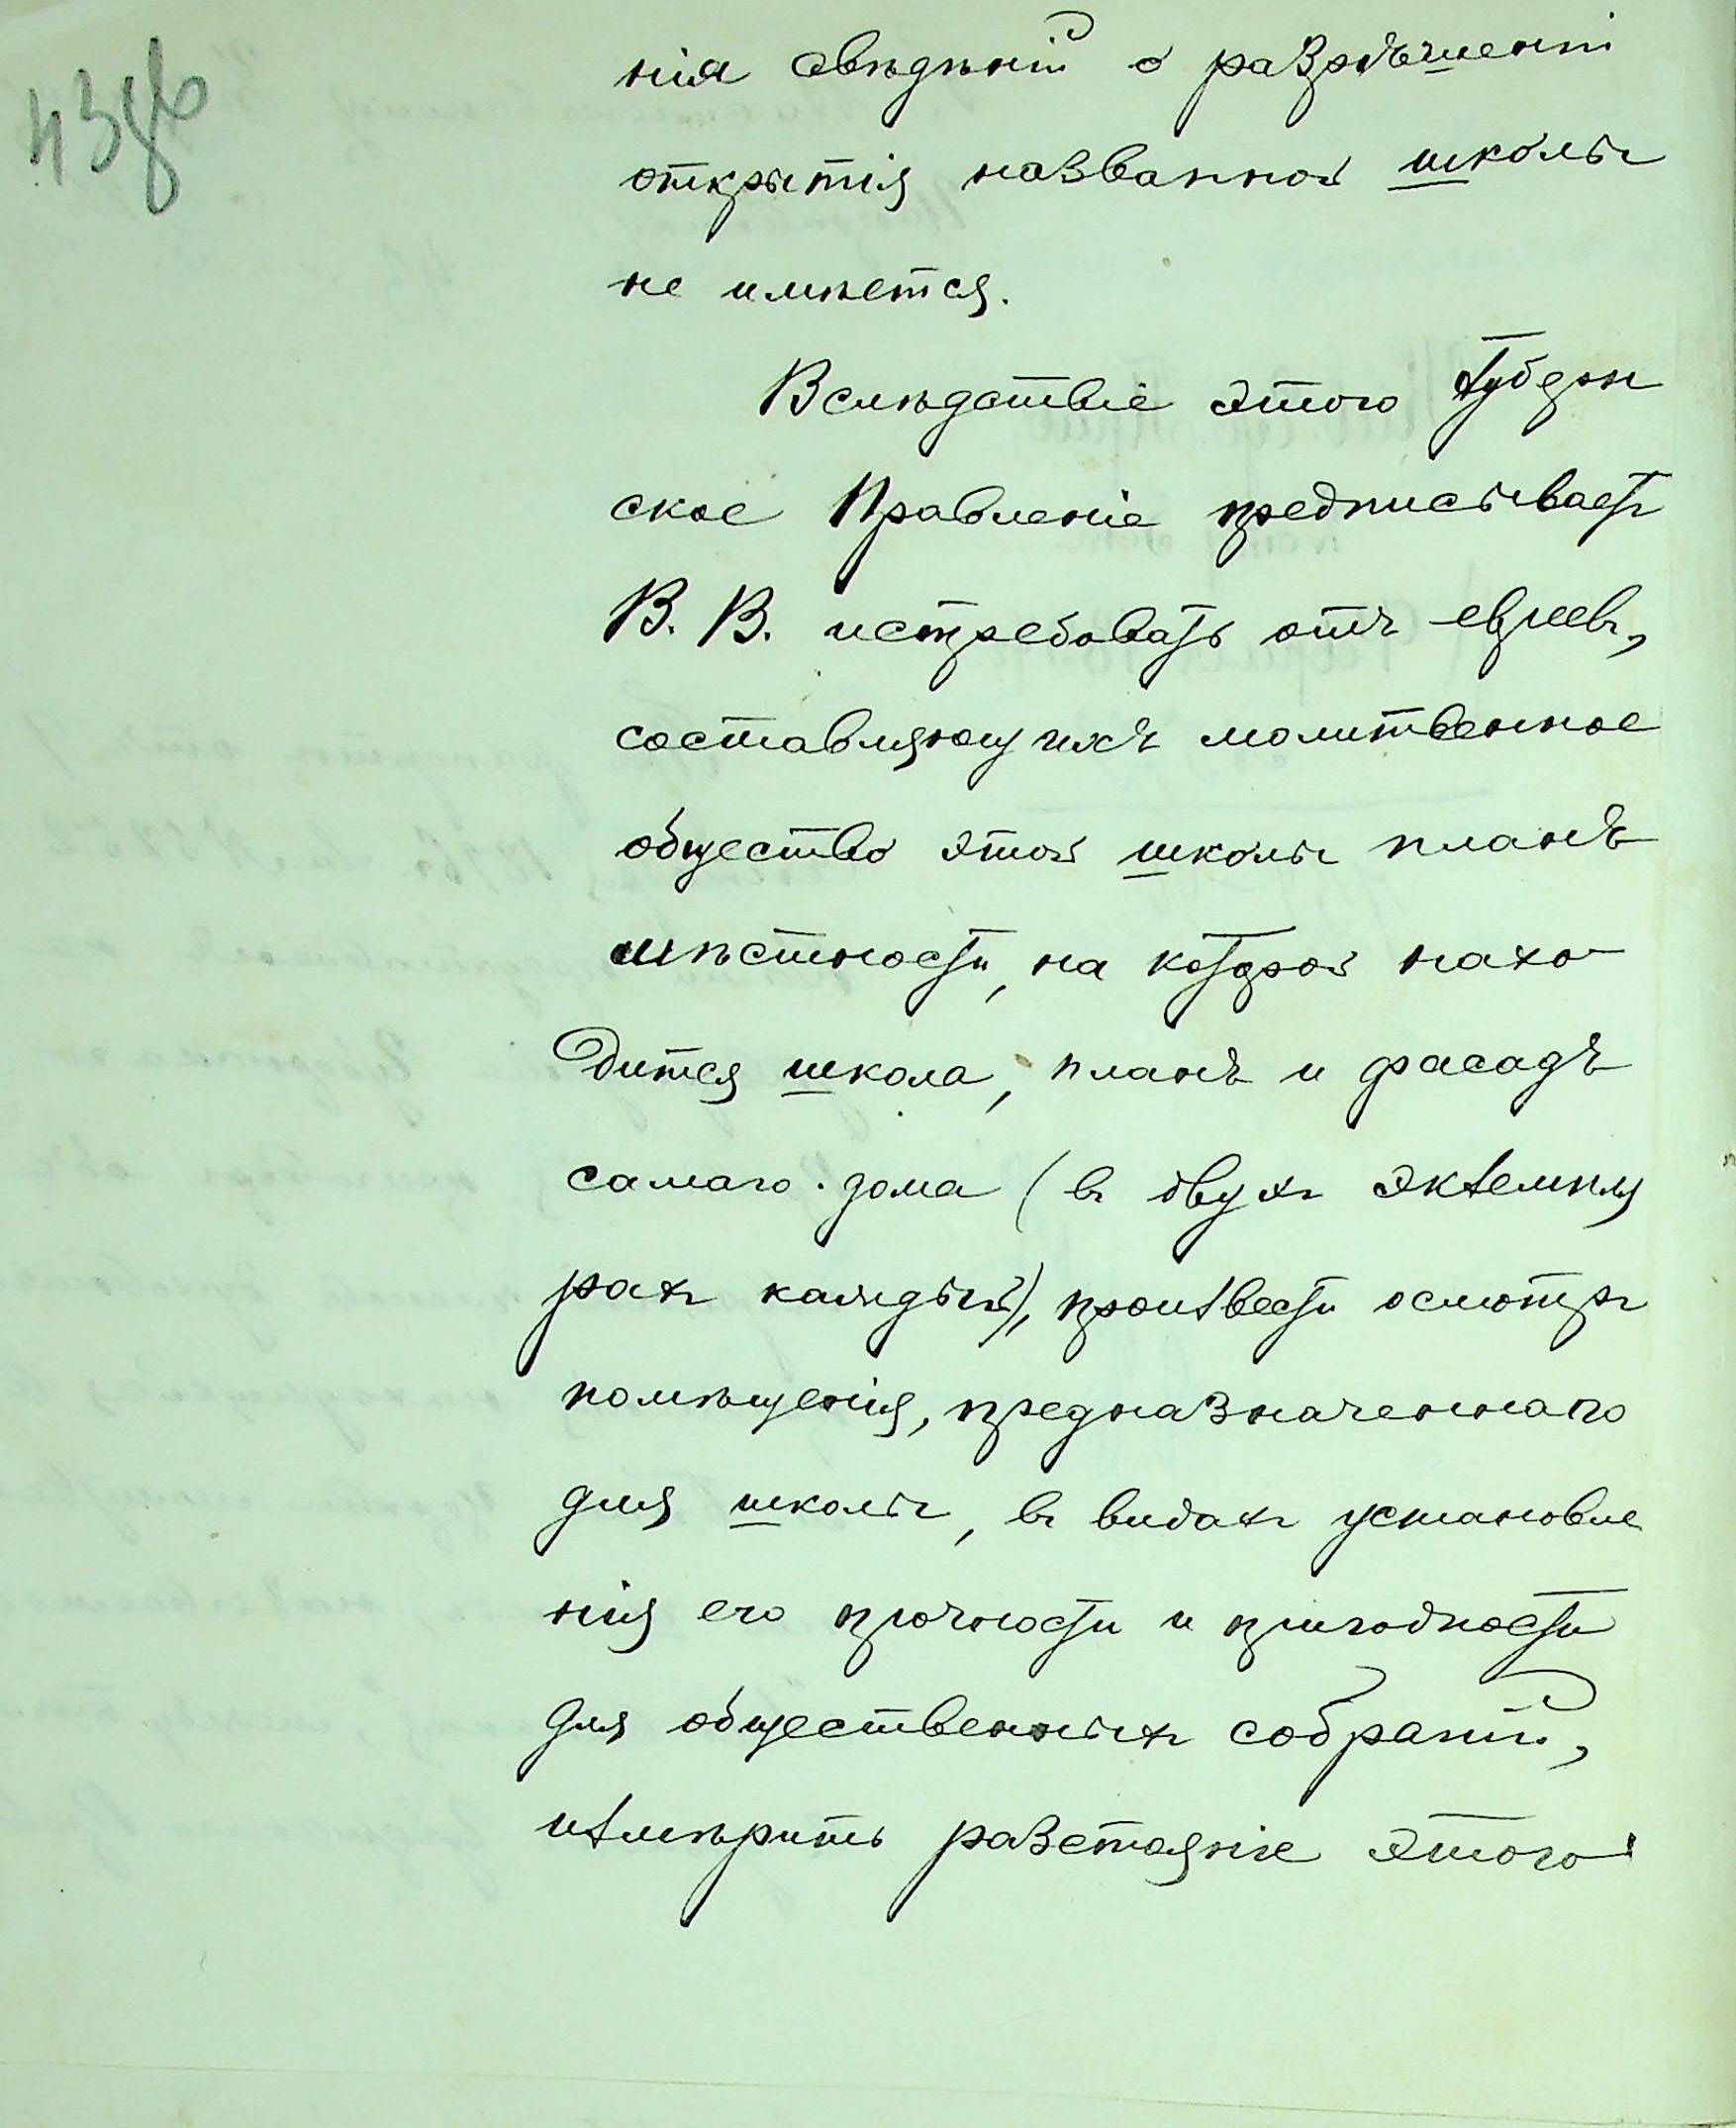 43об
нія свѣдѣній о разрѣшеніи
открытія названной школы
не имѣется.
Вслѣдствіе этого Губерн
ское Правленіе предписываетъ
В. В. истребовать отъ евреевъ,
составляющихъ молитвенное
общество этой школы планъ
мѣстности, на которой нахо
дится школа, планъ и фасадъ
самаго дома (въ двухъ экземпля
рахъ каждый), произвести осмотръ
помѣщенія, предназначеннаго
для школы, въ видахъ установле
нія его прочности и пригодности
для общественныхъ собраній,
измѣрить разстояніе этого